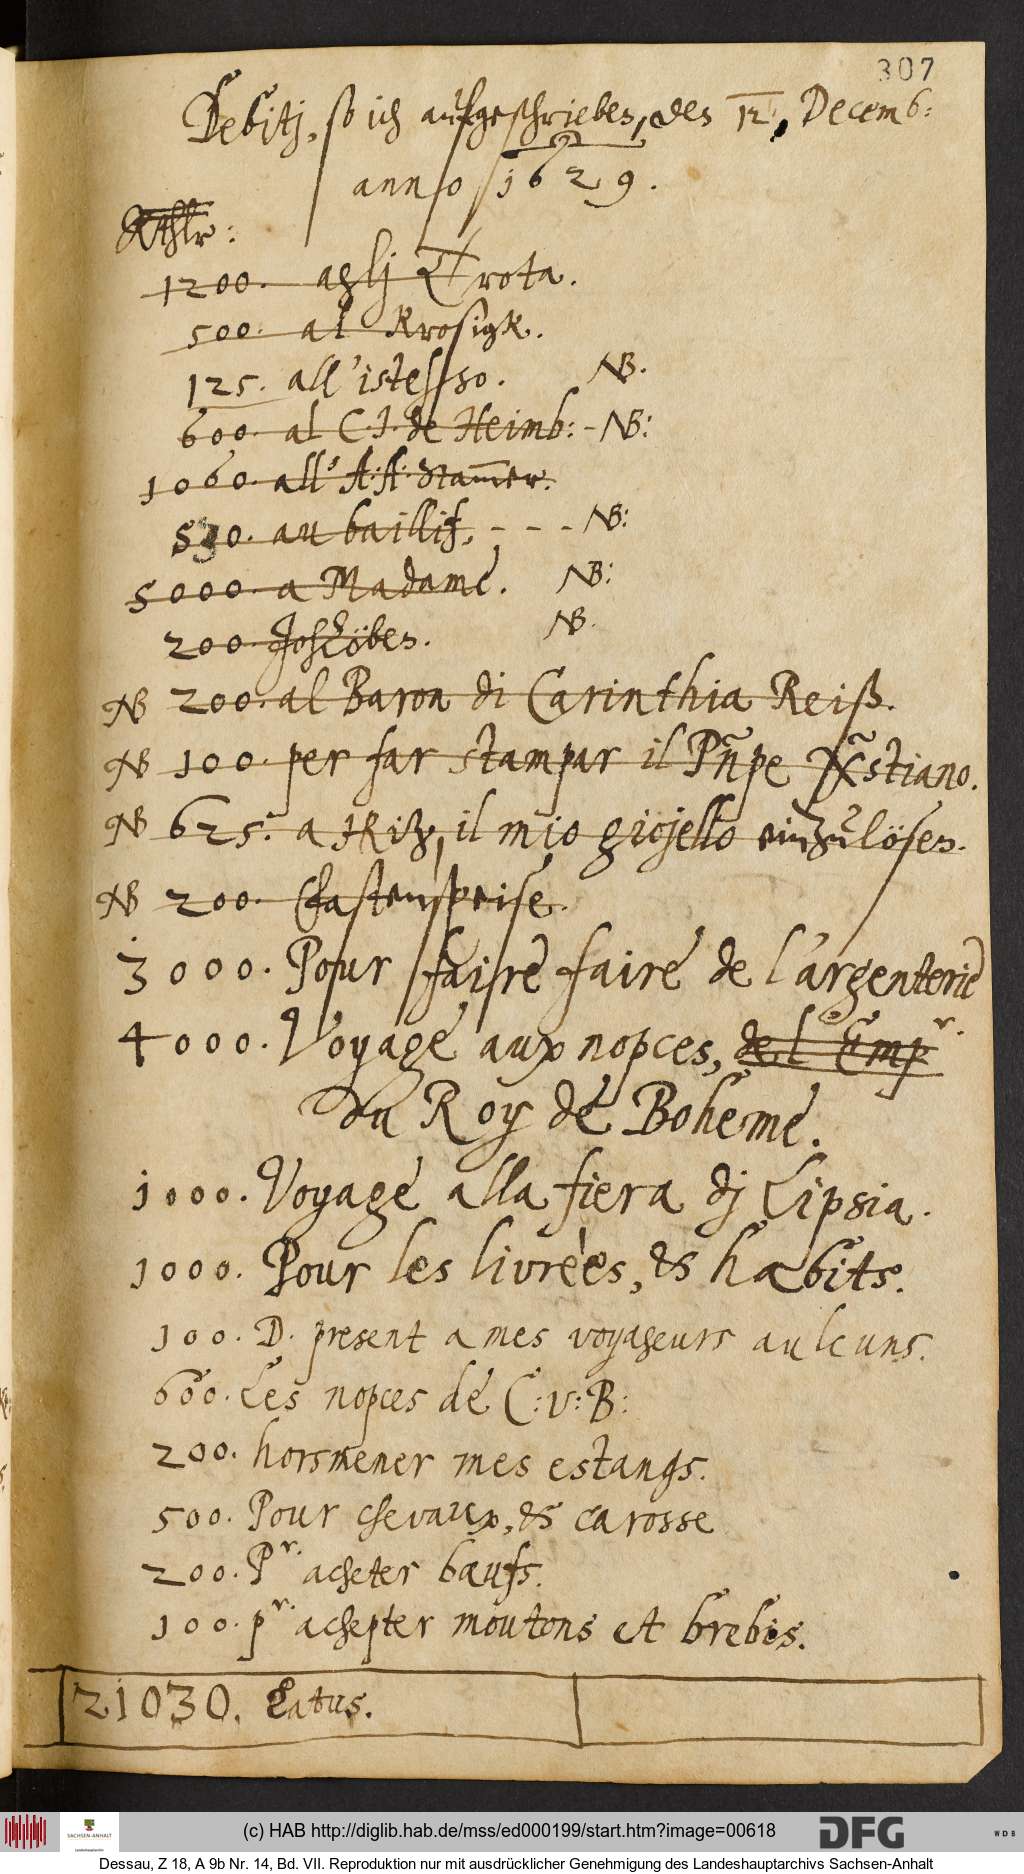 307
Debitj, so ich aufgeschrieben, den 12. Decemb:
anno 1629.
Rthlr:
1200. aglj Trota.
500. al Krosigk.
125. all'istesso. NB.
600. al C. J. de Heimb: - NB:
1060. all' A: A: Stammer.
530. au baillif, - - - NB:
5000. a Madame. NB:
200. NB.
NB 200. al Baron di Carinthia Reiß.
NB 100. per far stampar il Pñpe Xs̃tiano.
NB 625. a Ritz, il mio giojello einzulösen.
NB 200. Chastenspeise.
3000. Pour faire faire de l'argenterie
4000. Voyage aux nopces, de l'Empr.
du Roy de Boheme.
1000. Voyage alla fiera dj Lipsia.
1000. Pour les livrèes, & habits.
100. D. present a mes voyageurs aulcuns.
600. Les nopces de C: v: B:
200. horsmener mes estangs.
500. Pour chevaux, & carosse
200. Pr. acheter bœufs.
100. pr. achepter moutons et brebis.
21030. Latus.
(c) HAB http://diglib.hab.de/mss/ed000199/start.htm?image=00618
SACHSEN-ANHALT
DFG
WDB
Dessau, Z 18, A 9b Nr. 14, Bd. VII. Reproduktion nur mit ausdrücklicher Genehmigung des Landeshauptarchivs Sachsen-Anhalt